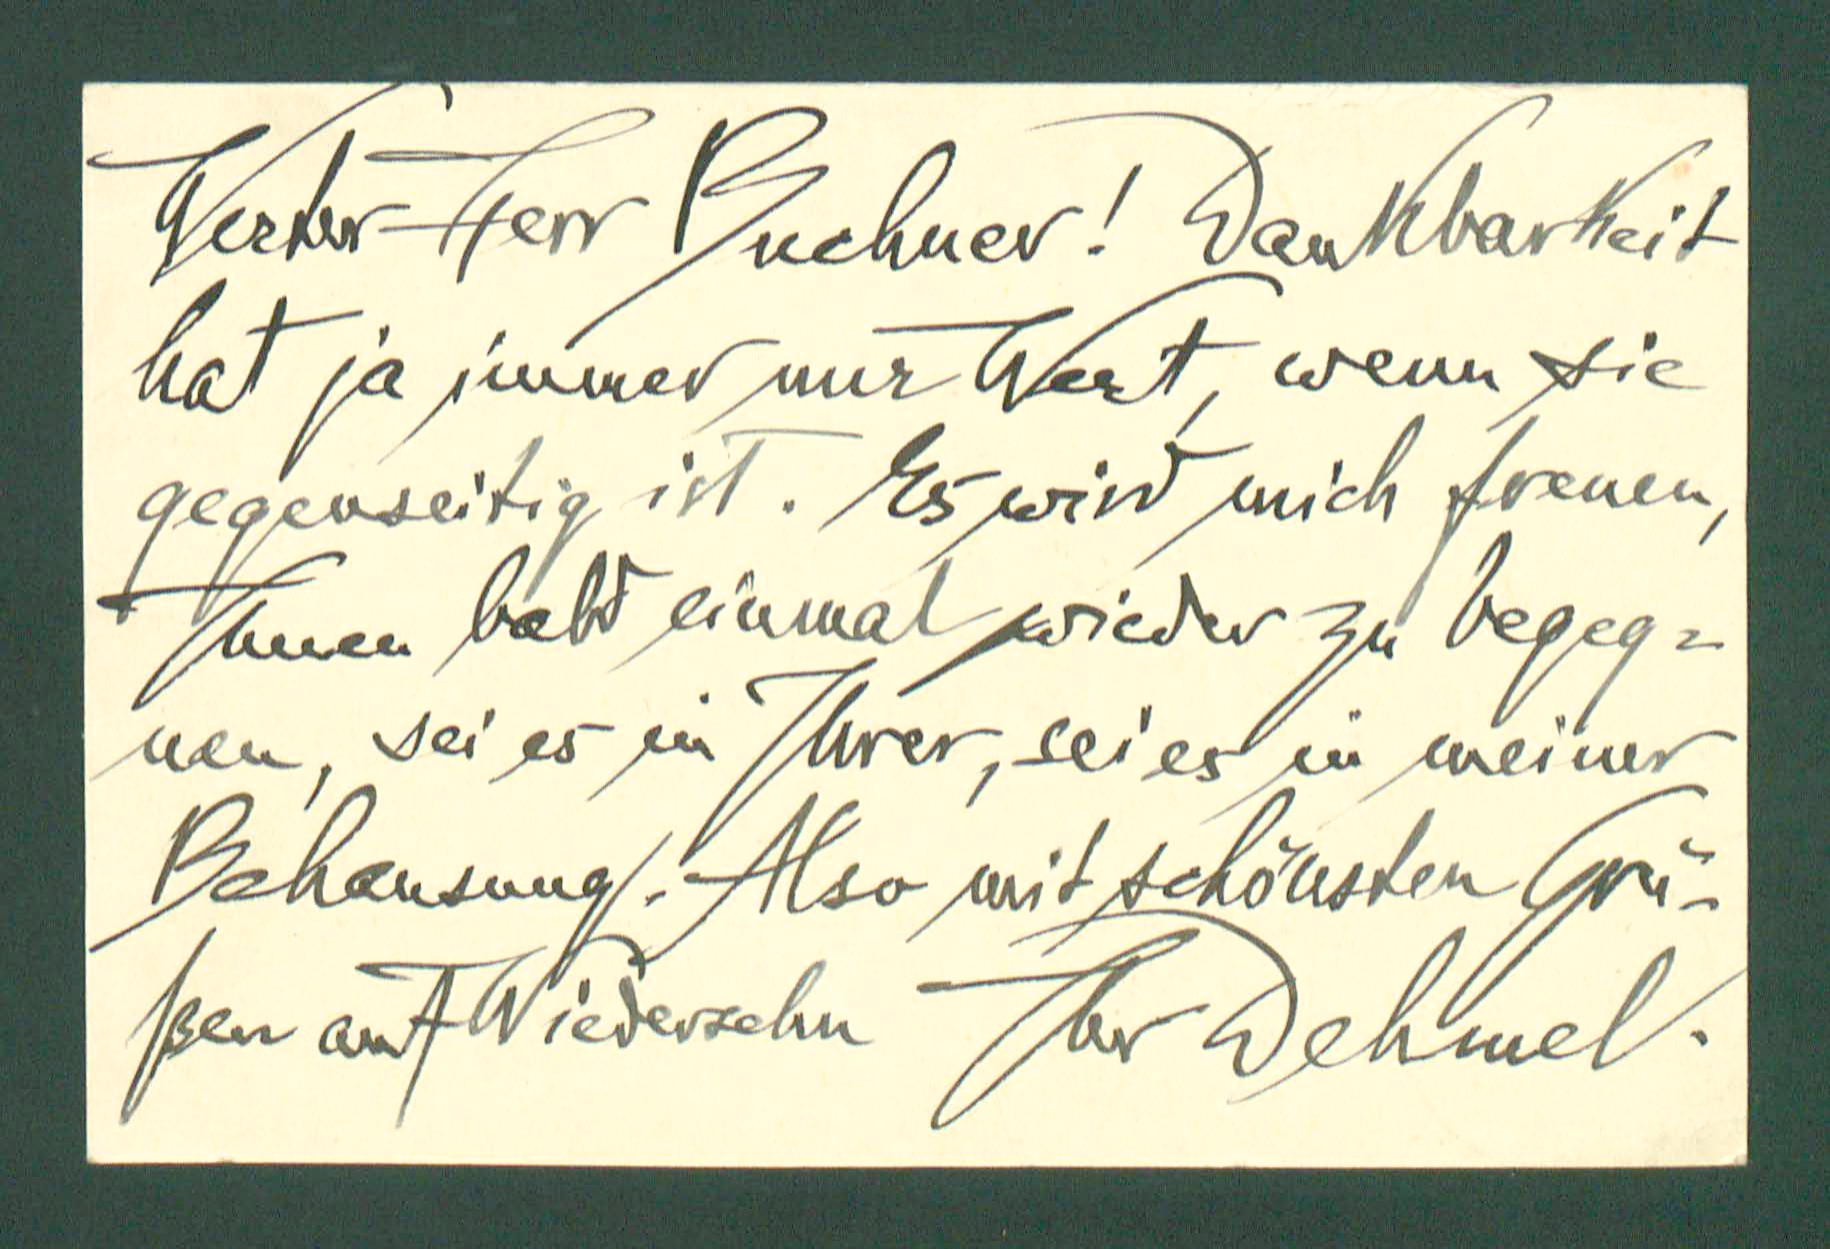 Werter Herr Buchner! Dankbarkeit
hat ja immer nur Wert, wenn sie
gegenseitig ist. Es wird mich freuen,
Ihnen bald einmal wieder zu begeg=
nen, sei es in Ihrer, sei es in meiner
Behausung. Also mit schönsten Grü-
ßen auf Wiedersehn Ihr Dehmel.